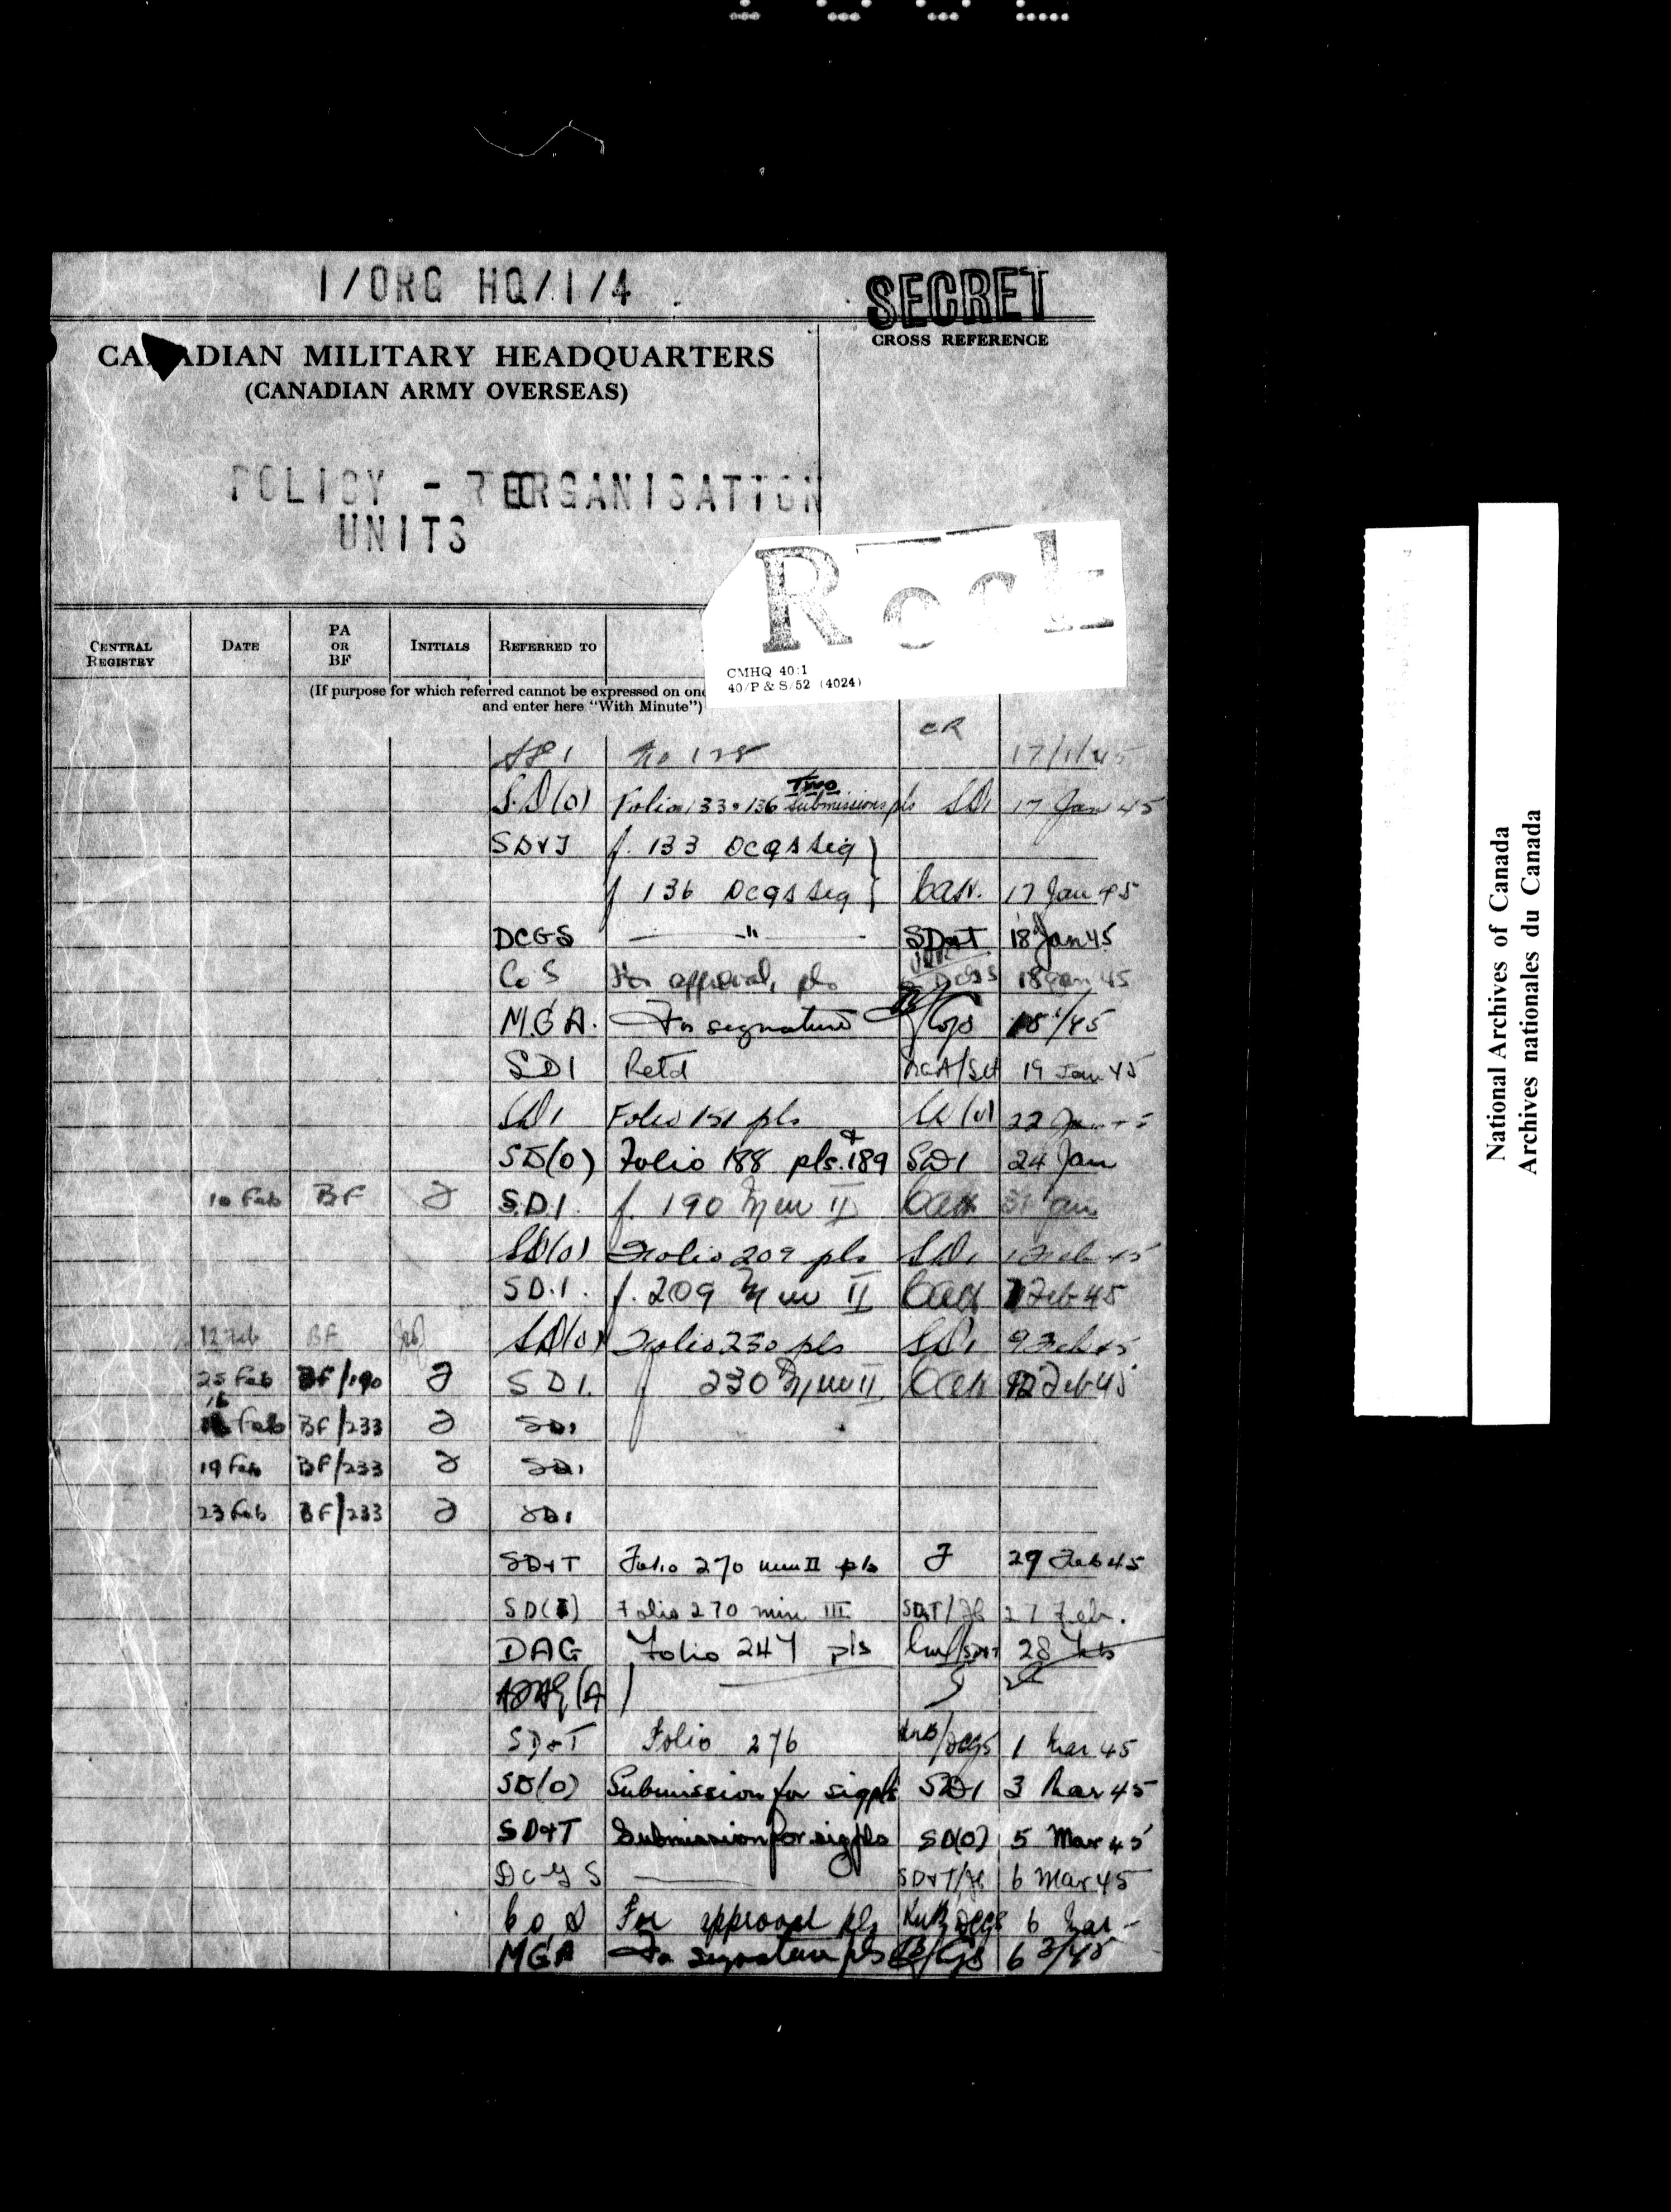 1/ORG HQ/1/4
SECRET
CROSS REFERENCE
CANADIAN MILITARY HEADQUARTERS
(CANADIAN ARMY OVERSEAS)
POLICY - REORGANISATION
UNITS
CMHQ 40:1
40/P & S/52 (4024)
CENTRAL REGISTRY DATE PA OR BF INITIALS REFERRED TO
(If purpose for which referred cannot be expressed on one
and enter here "With Minute")
CR
No 128 17/1/45
S.D(O) Folios 133 136 Two submissions pls SD1 17 Jan 45
SD&T f. 133 DCGS sig
f 136 DCGS sig 17 Jan 45
DCGS " SD&T 18 Jan 45
CoS For approval, pls DCGS 18 Jan 45
M.G.A. For signature
SD1 Retd 19 Jan 45
SD1 Folio 151 pls 22 Jan 45
SD(O) Folio 188 pls. & 189 SD1 24 Jan
10 Feb BF S.D.1. f. 190 Min II 31 Jan
SD(O) Folio 209 pls SD1 1 Feb 45
S.D.1. f. 209 Min II 1 Feb 45
12 Feb BF SD(O) Folio 230 pls SD1 9 Feb 45
25 Feb BF/190 SD1. f 230 Min II. 12 Feb 45
16 Feb BF/233 SD1
19 Feb BF/233 SD1
23 Feb BF/233 SD1
SD&T Folio 270 min II pls 27 Feb 45
Folio 270 min III SD&T 27 Feb.
DAG Folio 247 pls 28 Feb
SD&T Folio 276 1 Mar 45
SD(O) Submission for sig pls SD1 3 Mar 45
SD&T Submission for sig pls SD(O) 5 Mar 45
DCGS SD&T 6 Mar 45
CoS For approval pls DCGS 6 Mar
MGA For signature pls 6 3/45
National Archives of Canada
Archives nationales du Canada